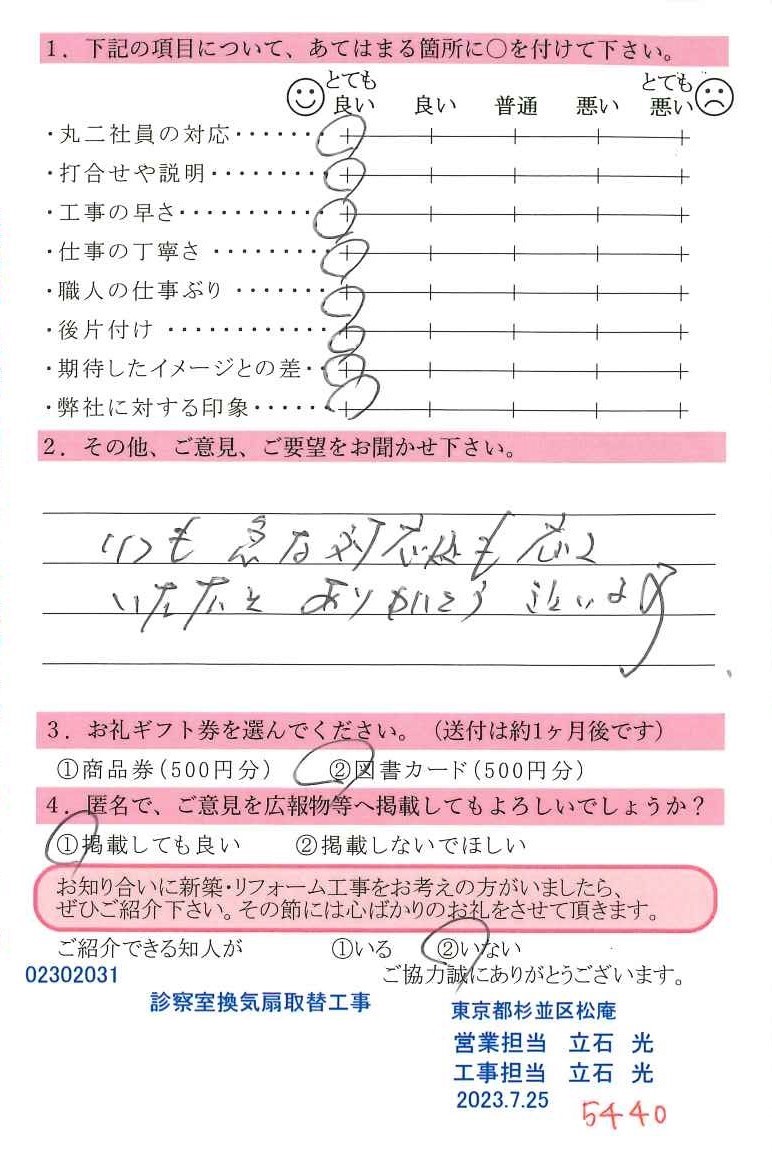 1．下記の項目について、あてはまる箇所に○を付けて下さい。
とても良い 良い 普通 悪い とても悪い
・丸二社員の対応・・・・・・
・打合せや説明・・・・・・・・
・工事の早さ・・・・・・・・・・
・仕事の丁寧さ・・・・・・・・
・職人の仕事ぶり・・・・・・
・後片付け・・・・・・・・・・・
・期待したイメージとの差・・
・弊社に対する印象・・・・・
2．その他、ご意見、ご要望をお聞かせ下さい。
いつも 急な対応にも 応じて
いただき ありがとう ございます
3．お礼ギフト券を選んでください。（送付は約1ヶ月後です）
①商品券(500円分) ②図書カード(500円分)
4．匿名で、ご意見を広報物等へ掲載してもよろしいでしょうか？
①掲載しても良い ②掲載しないでほしい
お知り合いに新築・リフォーム工事をお考えの方がいましたら、
ぜひご紹介下さい。その節には心ばかりのお礼をさせて頂きます。
ご紹介できる知人が ①いる ②いない
02302031 ご協力誠にありがとうございます。
診察室換気扇取替工事 東京都杉並区松庵
営業担当 立石 光
工事担当 立石 光
2023.7.25 5440